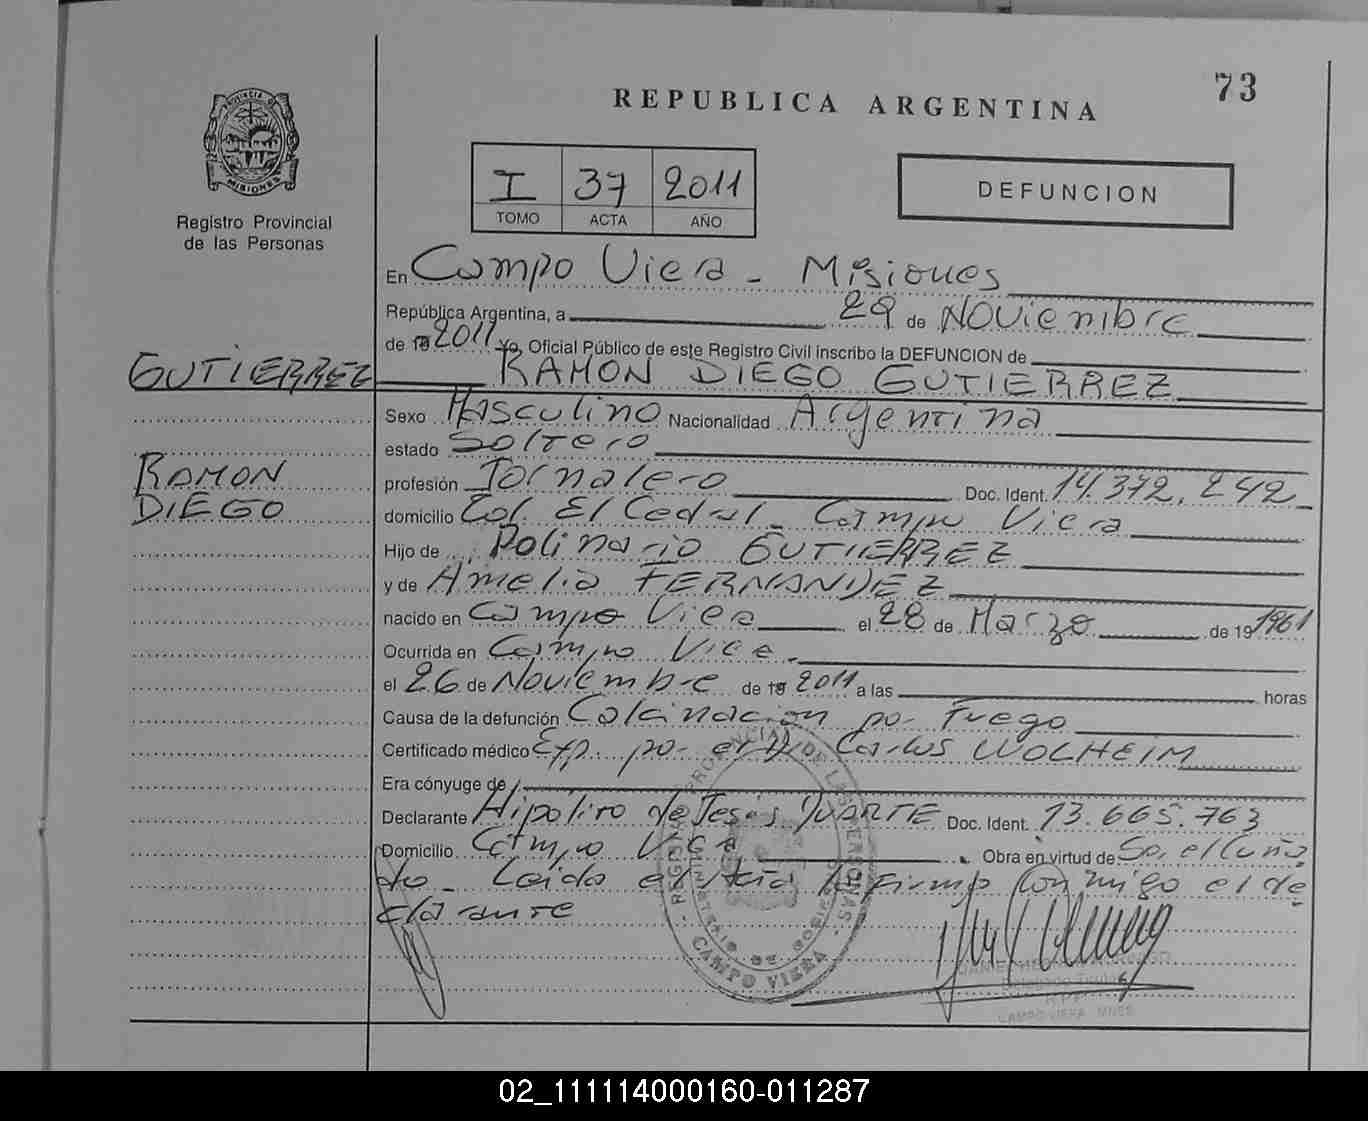 73
REPUBLICA ARGENTINA
PROVINCIA DE
MISIONES
Registro Provincial
de las Personas
I 37 2011
TOMO ACTA AÑO
DEFUNCION
En Campo Viera - Misiones
República Argentina, a 29 de Noviembre
de 19 2011 Yo, Oficial Público de este Registro Civil inscribo la DEFUNCION de
GUTIERREZ RAMON DIEGO GUTIERREZ
Sexo Masculino Nacionalidad Argentina
estado Soltero
RAMON
DIEGO
profesión Jornalero Doc. Ident. 14.372.242
domicilio Col. El Cedral - Campo Viera
Hijo de Polinario GUTIERREZ
y de Amelia FERNANDEZ
nacido en Campo Viera el 28 de Marzo de 19 1961
Ocurrida en Campo Viera
el 26 de Noviembre de 19 2011 a las horas
Causa de la defunción Calcinacion por Fuego
Certificado médico Exp. por el Dr. Carlos WOLHEIM
Era cónyuge de
Declarante Hipolito de Jesús DUARTE Doc. Ident. 13.665.763
Domicilio Campo Viera Obra en virtud de
Leido el Acta la Firma Conmigo el de
clarante
REGISTRO PROVINCIAL DE LAS PERSONAS
MINISTERIO DE GOBIERNO
CAMPO VIERA
CAMPO VIERA MNES
02_111114000160-011287